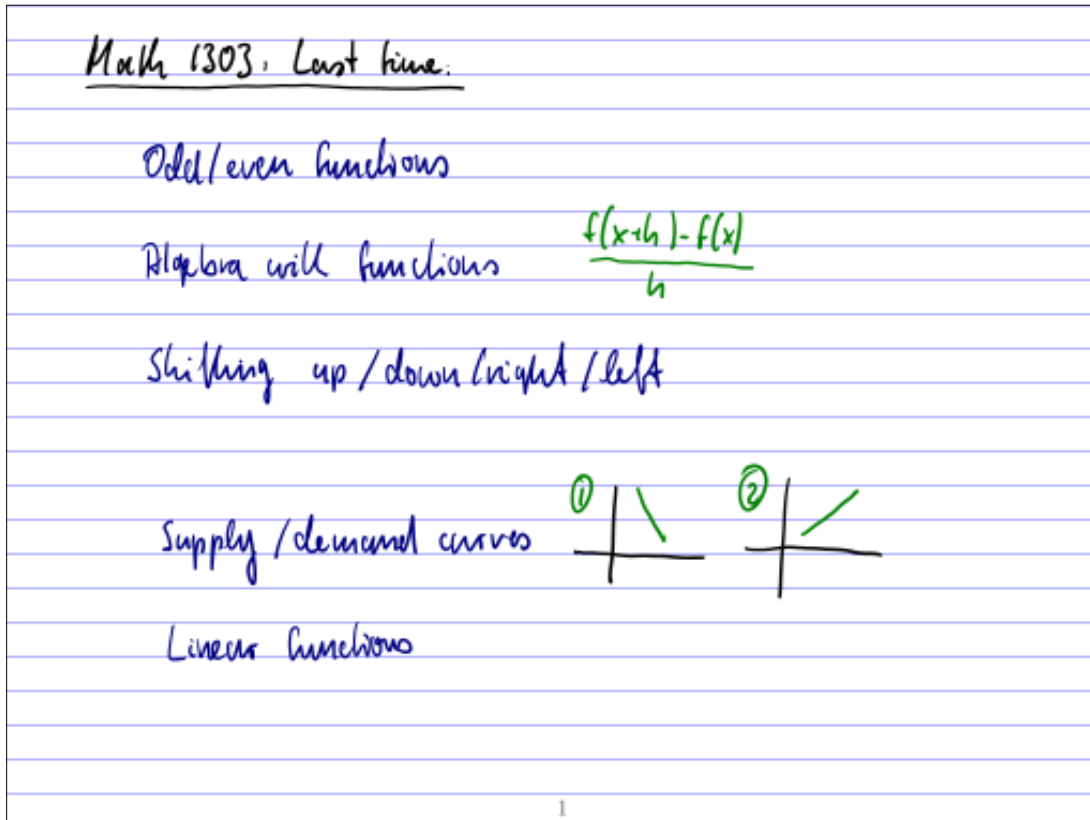 Math 1303: Last time:
Odd/even functions
Algebra with functions f(x+h)-f(x)
h
Shifting up/down/right/left
① ②
Supply/demand curves
Linear functions
1